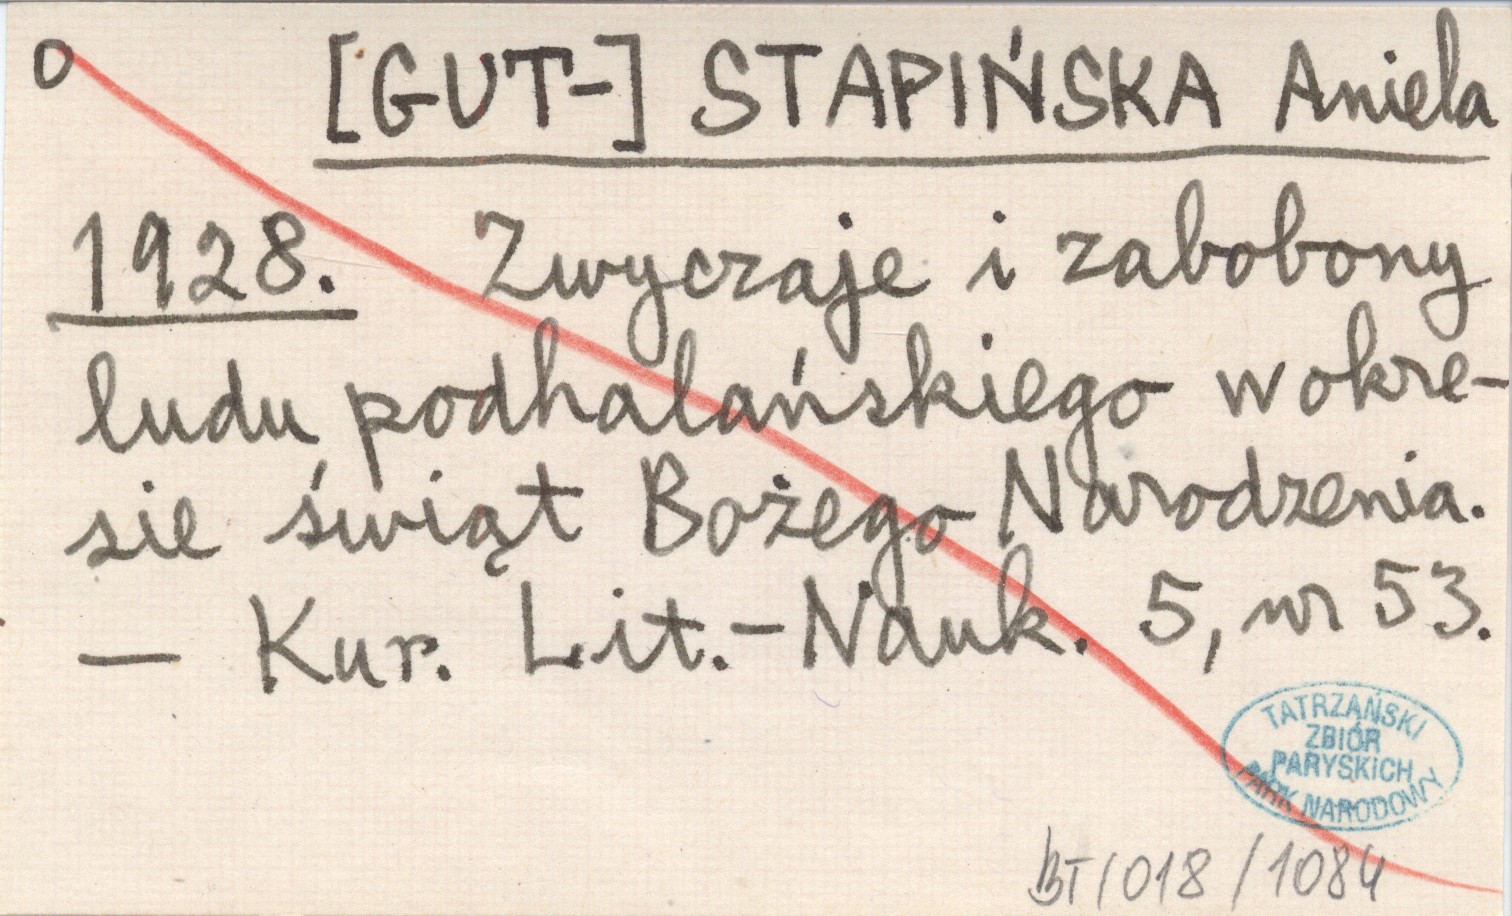 O [GUT-] STAPIŃSKA Aniela
1928. Zwyczaje i zabobony
ludu podhalańskiego w okre-
sie świąt Bożego Narodzenia.
— Kur. Lit.-Nauk. 5, nr 53.
TATRZAŃSKI
ZBIÓR
PARYSKICH
PARK NARODOWY
BT/018/1084